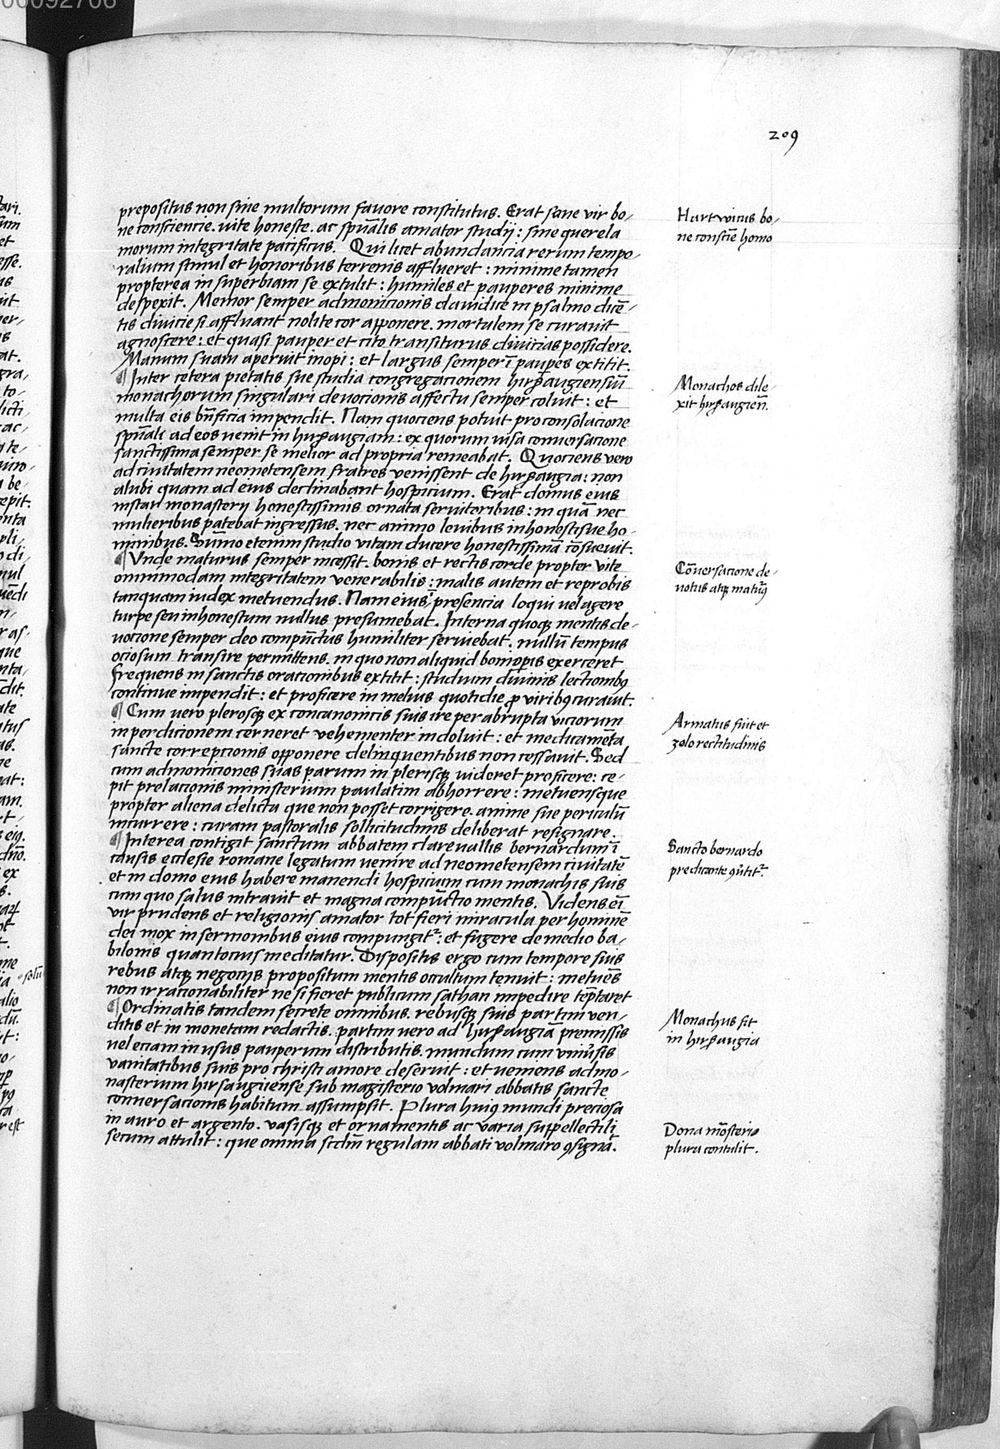 00092706
209
prepositus non sine multorum fauore constitutus. Erat sane vir bo-
ne consciencie. uite honeste. ac spūalis amator studij: sine querela
morum integritate pacificus. Qui licet abundancia rerum tempo-
ralium simul et honoribus terrenis afflueret: minime tamen
propterea in superbiam se extulit: humiles et pauperes minime
despexit. Memor semper admonicionis dauidice in psalmo dicē-
tis diuicie si affluant nolite cor apponere. mortalem se curauit
agnoscere: et quasi pauper et cito transiturus diuicias possidere.
Manum suam aperuit inopi: et largus semper ī paupes extitit.
¶ Inter cetera pietatis sue studia congregacionem hirsaugiensiū
monachorum singulari deuocionis affectu semper coluit: et
multa eis bn̄ficia impendit. Nam quociens potuit pro consolacione
spūali ad eos uenit in hirsaugiam: ex quorum uisa conuersacione
sanctissima semper se melior ad propria remeabat. Quociens vero
ad ciuitatem neometensem fratres venissent de hirsaugia: non
alubi quam ad eius declinabant hospicium. Erat domus eius
instar monasterij honestissimis ornata seruitoribus: in quā nec
mulieribus patebat ingressus. nec animo leuibus inhonestisue ho-
minibus. Sūmo etenim studio vitam ducere honestissimā cōsueuit.
¶ Vnde maturus semper incessit. bonis et rectis corde propter vite
ommmodam integritatem venerabilis: malis autem et reprobis
tanquam iudex metuendus. Nam eius ī presencia loqui uel agere
turpe seu inhonestum nullus presumebat. Interna quoqꝫ mentis de-
uocione semper deo compūctus humiliter seruiebat. nullū tempus
ociosum transire permittens. in quo non aliquid boni opis exerceret
frequens in sanctis oracionibus extitit: studium diuinis lectionibꝯ
continue impendit: et proficere in melius quotidie ꝓ viribꝯ curauit.
¶ Cum uero plerosqꝫ ex concanonicis suis ire per abrupta uiciorum
in perdicionem cerneret vehementer indoluit: et medicamēta
sancte correpcionis opponere delinquentibus non cessauit. Sed
cum admoniciones suas parum in plerisqꝫ uideret proficere: ce-
pit prelacionis ministerium paulatim abhorrere: metuensque
propter aliena delicta que non posset corrigere. anime sue periculū
incurrere: curam pastoralis sollicitudinis deliberat resignare.
¶ Interea contigit sanctum abbatem clareuallis bernardum ī
causis ecclesie romane legatum uenire ad neometensem ciuitatē
et in domo eius habere manendi hospicium cum monachis suis
cum quo salus intrauit et magna compūctio mentis. Videns eī
vir prudens et religionis amator tot fieri miracula per hominē
dei mox in sermonibus eius compungitᷣ: et fugere de medio ba-
bilonis quantocius meditatur. Dispositis ergo cum tempore suis
rebus atqꝫ negocijs propositum mentis occultum tenuit: metuēs
non irracionabiliter ne si fieret publicum sathan impedire teptaret
¶ Ordinatis tandem secrete omnibus. rebusqꝫ suis partim ven-
ditis et in monetam redactis. partim uero ad hirsaugiā premissis
uel eciam in usus pauperum distributis. mundum cum vniūsis
vanitatibus suis pro christi amore deseruit: et ueniens ad mo-
nasterium hirsaugiense sub magisterio volmari abbatis sancte
conuersacionis habitum assumpsit. Plura huiꝯ mundi preciosa
in auro et argento. vasisqꝫ et ornamentis ac varia supellectili
secum attulit: que omnia scdm̄ regulam abbati volmaro ꝯsignāt.
Hartwicus bo-
ne consciē homo
Monachos dile-
xit hirsaugien̄.
Cōuersacione de-
uotus atqꝫ maturꝯ
Armatus fuit et
zelo rectitudinis
Sancto bernardo
predicante ꝯūtitᷣ.
Monachus fit
in hirsaugia
Dona mōsterio
plura contulit.